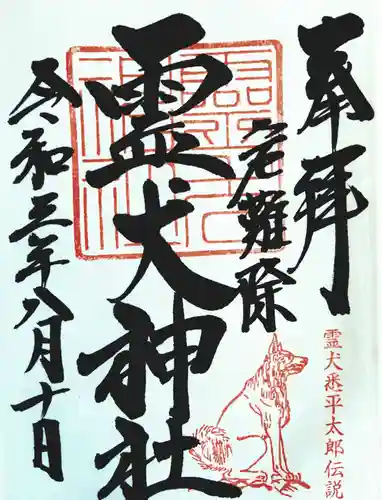 奉拝
危難除
霊犬神社
令和三年八月十日
霊犬悉平太郎伝説